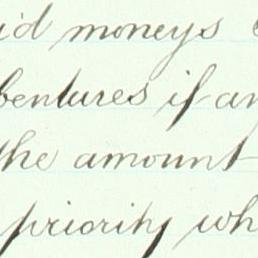 id moneys
bentures if an
the amount
priority wh